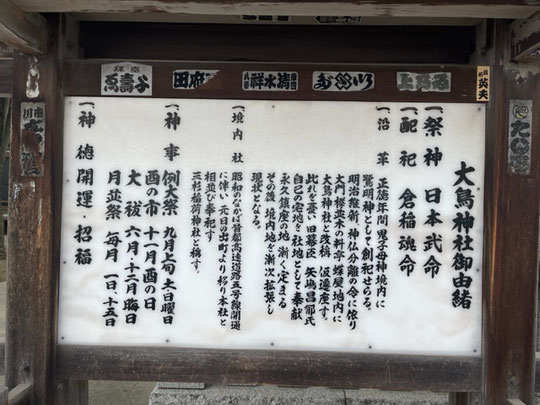 大鳥神社御由緒
一、祭神 日本武命
一、配祀 倉稲魂命
一、沿革 正徳年間 鬼子母神境内に
鷺明神として創祀せらる。
明治維新 神仏分離の令に依り
大門欅並木の料亭 蝶屋地内に
大鳥神社と改稱 仮遷座す。
此れを憂い旧幕臣 矢嶋昌郁氏
自己の宅地を社地として奉献
永久鎮座の地 漸く定まる
その後 境内地を漸次拡張し
現状となる。
一、境内社 昭和のなかば首都高速道路五号線開通
に伴い 元日の出町より移り本社と
相並び奉祀す
三杉稲荷神社と稱す。
一、神事 例大祭 九月上旬 土日曜日
酉の市 十一月酉の日
大祓 六月 十二月晦日
月並祭 毎月 一日、十五日
一、神徳 開運・招福
田府
清水祥
英夫
市川